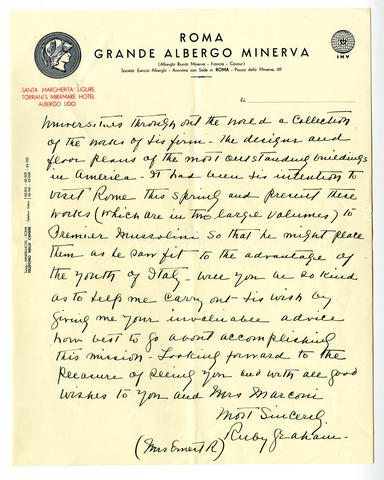 ROMA
GRANDE ALBERGO MINERVA
(Alberghi Riuniti Minerva - Francia - Cavour)
Società Esercizi Alberghi - Anonima con Sede in ROMA - Piazza della Minerva, 69
INV
SANTA MARGHERITA LIGURE
TORRANI'S MIRAMARE HOTEL
ALBERGO LIDO
li
Universities through out the world a collection
of the works of his firm - The designs and
floor plans of the most outstanding buildings
in America - It had been his intention to
visit Rome this spring and present these
works (which are in two large volumes) to
Premier Mussolini so that he might place
them as he saw fit to the advantage of
the youth of Italy - Will you be so kind
as to help me carry out his wish by
giving me your invaluable advice
how best to go about accomplishing
this mission - Looking forward to the
pleasure of seeing you and with all good
wishes to you and Mrs Marconi
Most Sincerely,
Ruby Graham -
(Mrs Ernest R)